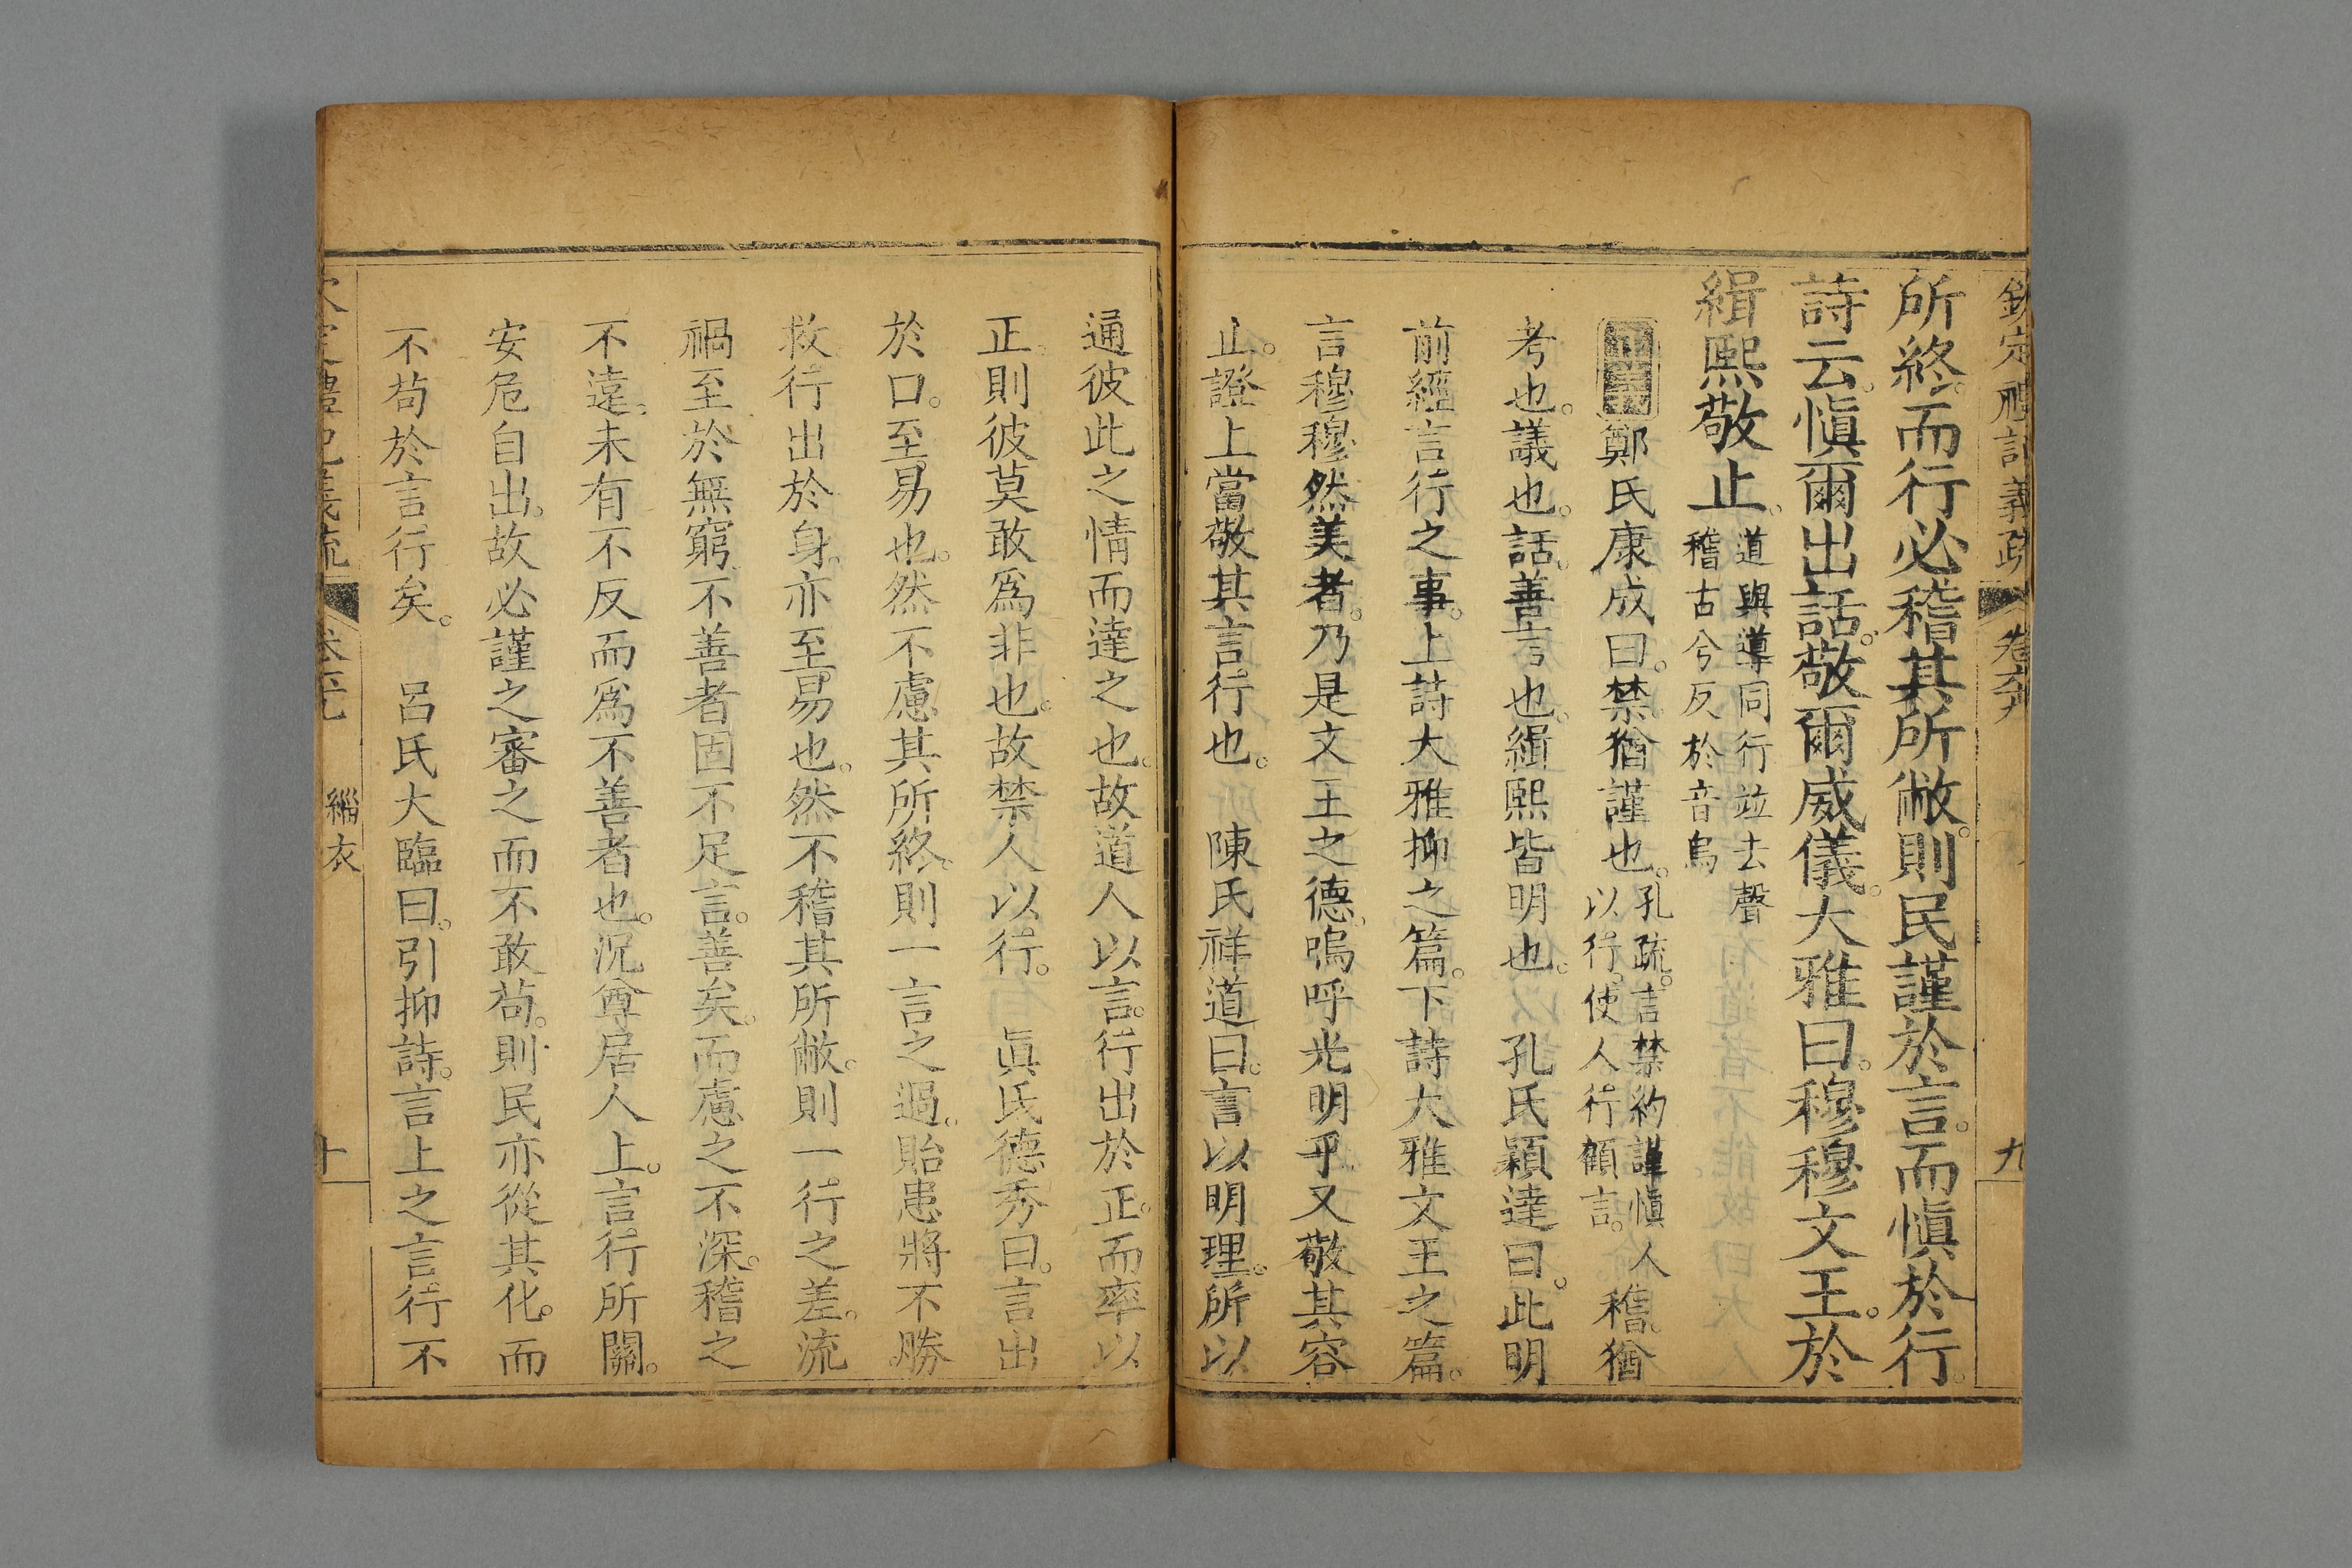 欽定禮記義疏 卷 九
所終而行必稽其所敝則民謹於言而愼於行
詩云愼爾出話敬爾威儀大雅曰穆穆文王於
緝熙敬止道與導同行竝去聲
稽古兮反於音烏
鄭氏康成曰禁猶謹也孔疏言禁約謹愼人
以行使人行顧言稽猶
考也議也話善言也緝熙皆明也 孔氏穎達曰此明
前經言行之事上詩大雅抑之篇下詩大雅文王之篇
言穆穆然美者乃是文王之德嗚呼光明乎又敬其容
止證上當敬其言行也 陳氏祥道曰言以明理所以
通彼此之情而達之也故道人以言行出於正而率以
正則彼莫敢爲非也故禁人以行 眞氏德秀曰言出
於口至易也然不慮其所終則一言之過貽患將不勝
救行出於身亦至易也然不稽其所敝則一行之差流
禍至於無窮不善者固不足言善矣而慮之不深稽之
不遠未有不反而爲不善者也況尊居人上言行所關
安危自出故必謹之審之而不敢苟則民亦從其化而
不苟於言行矣 呂氏大臨曰引抑詩言上之言行不
緇衣 十